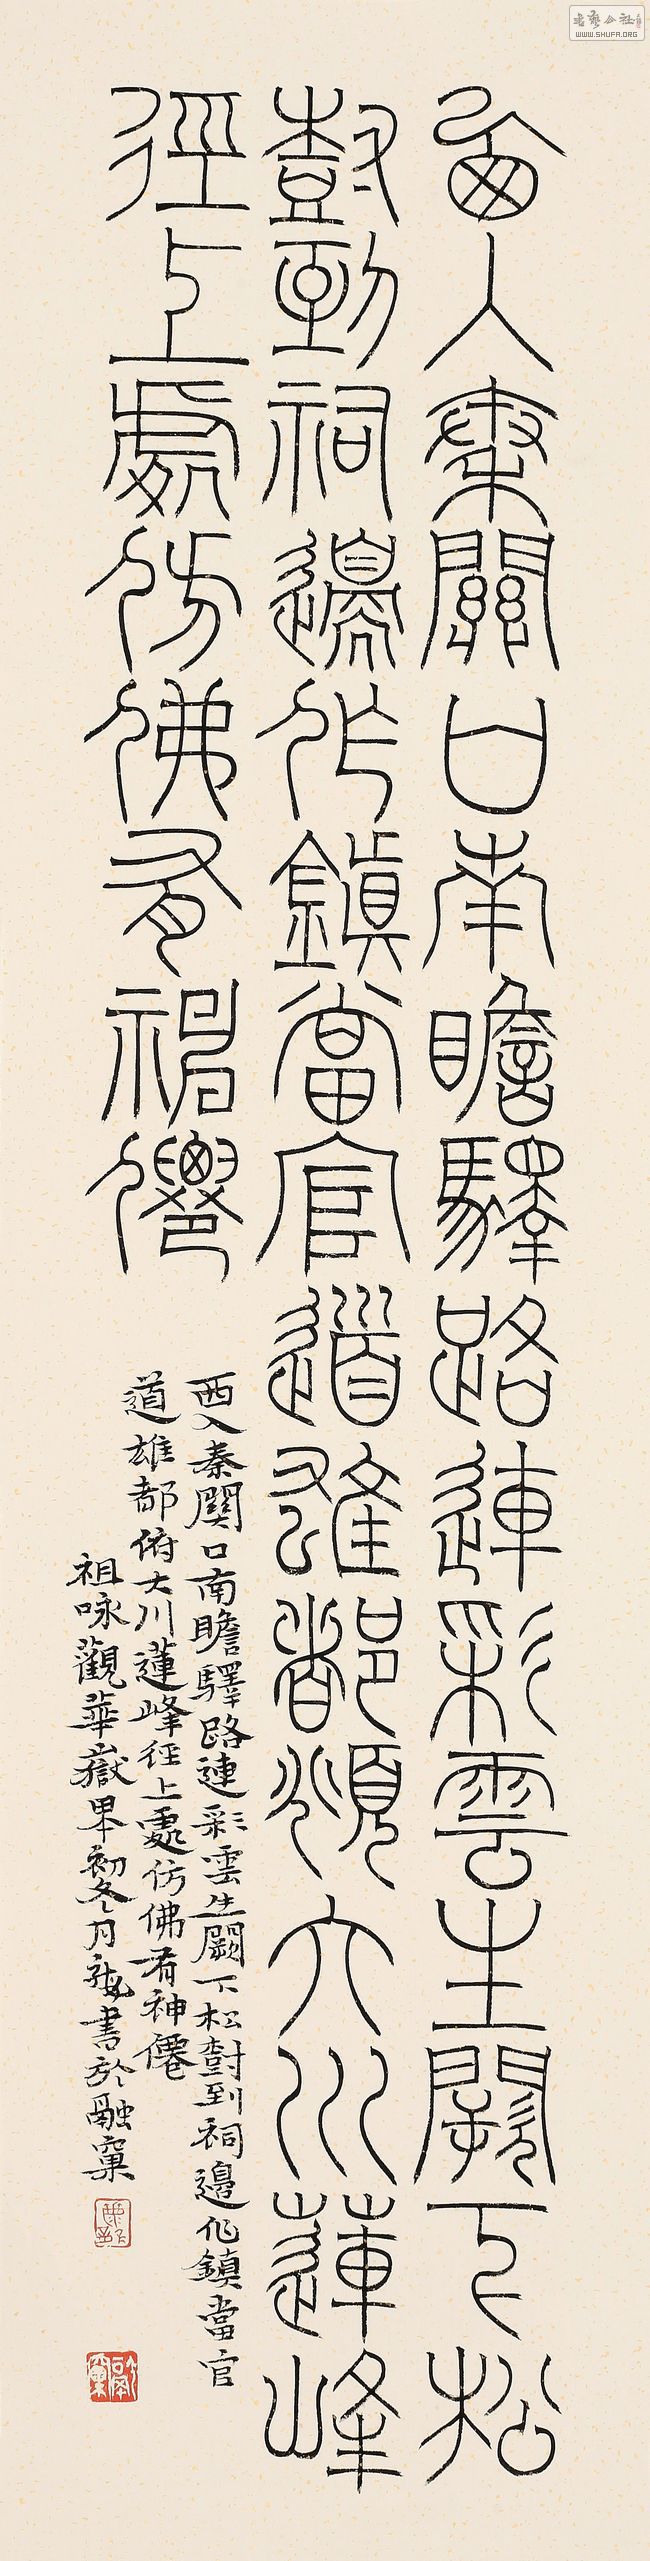 西入秦關口南瞻驛路連彩雲生闕下松
樹到祠邊作鎮當官道雄都俯大川蓮峰
徑上處仿佛有神僊
西入秦關口南瞻驛路連彩雲生闕下松樹到祠邊作鎮當官
道雄都俯大川蓮峰徑上處仿佛有神僊
祖咏觀華嶽
書於融窠
WWW.SHUFA.ORG